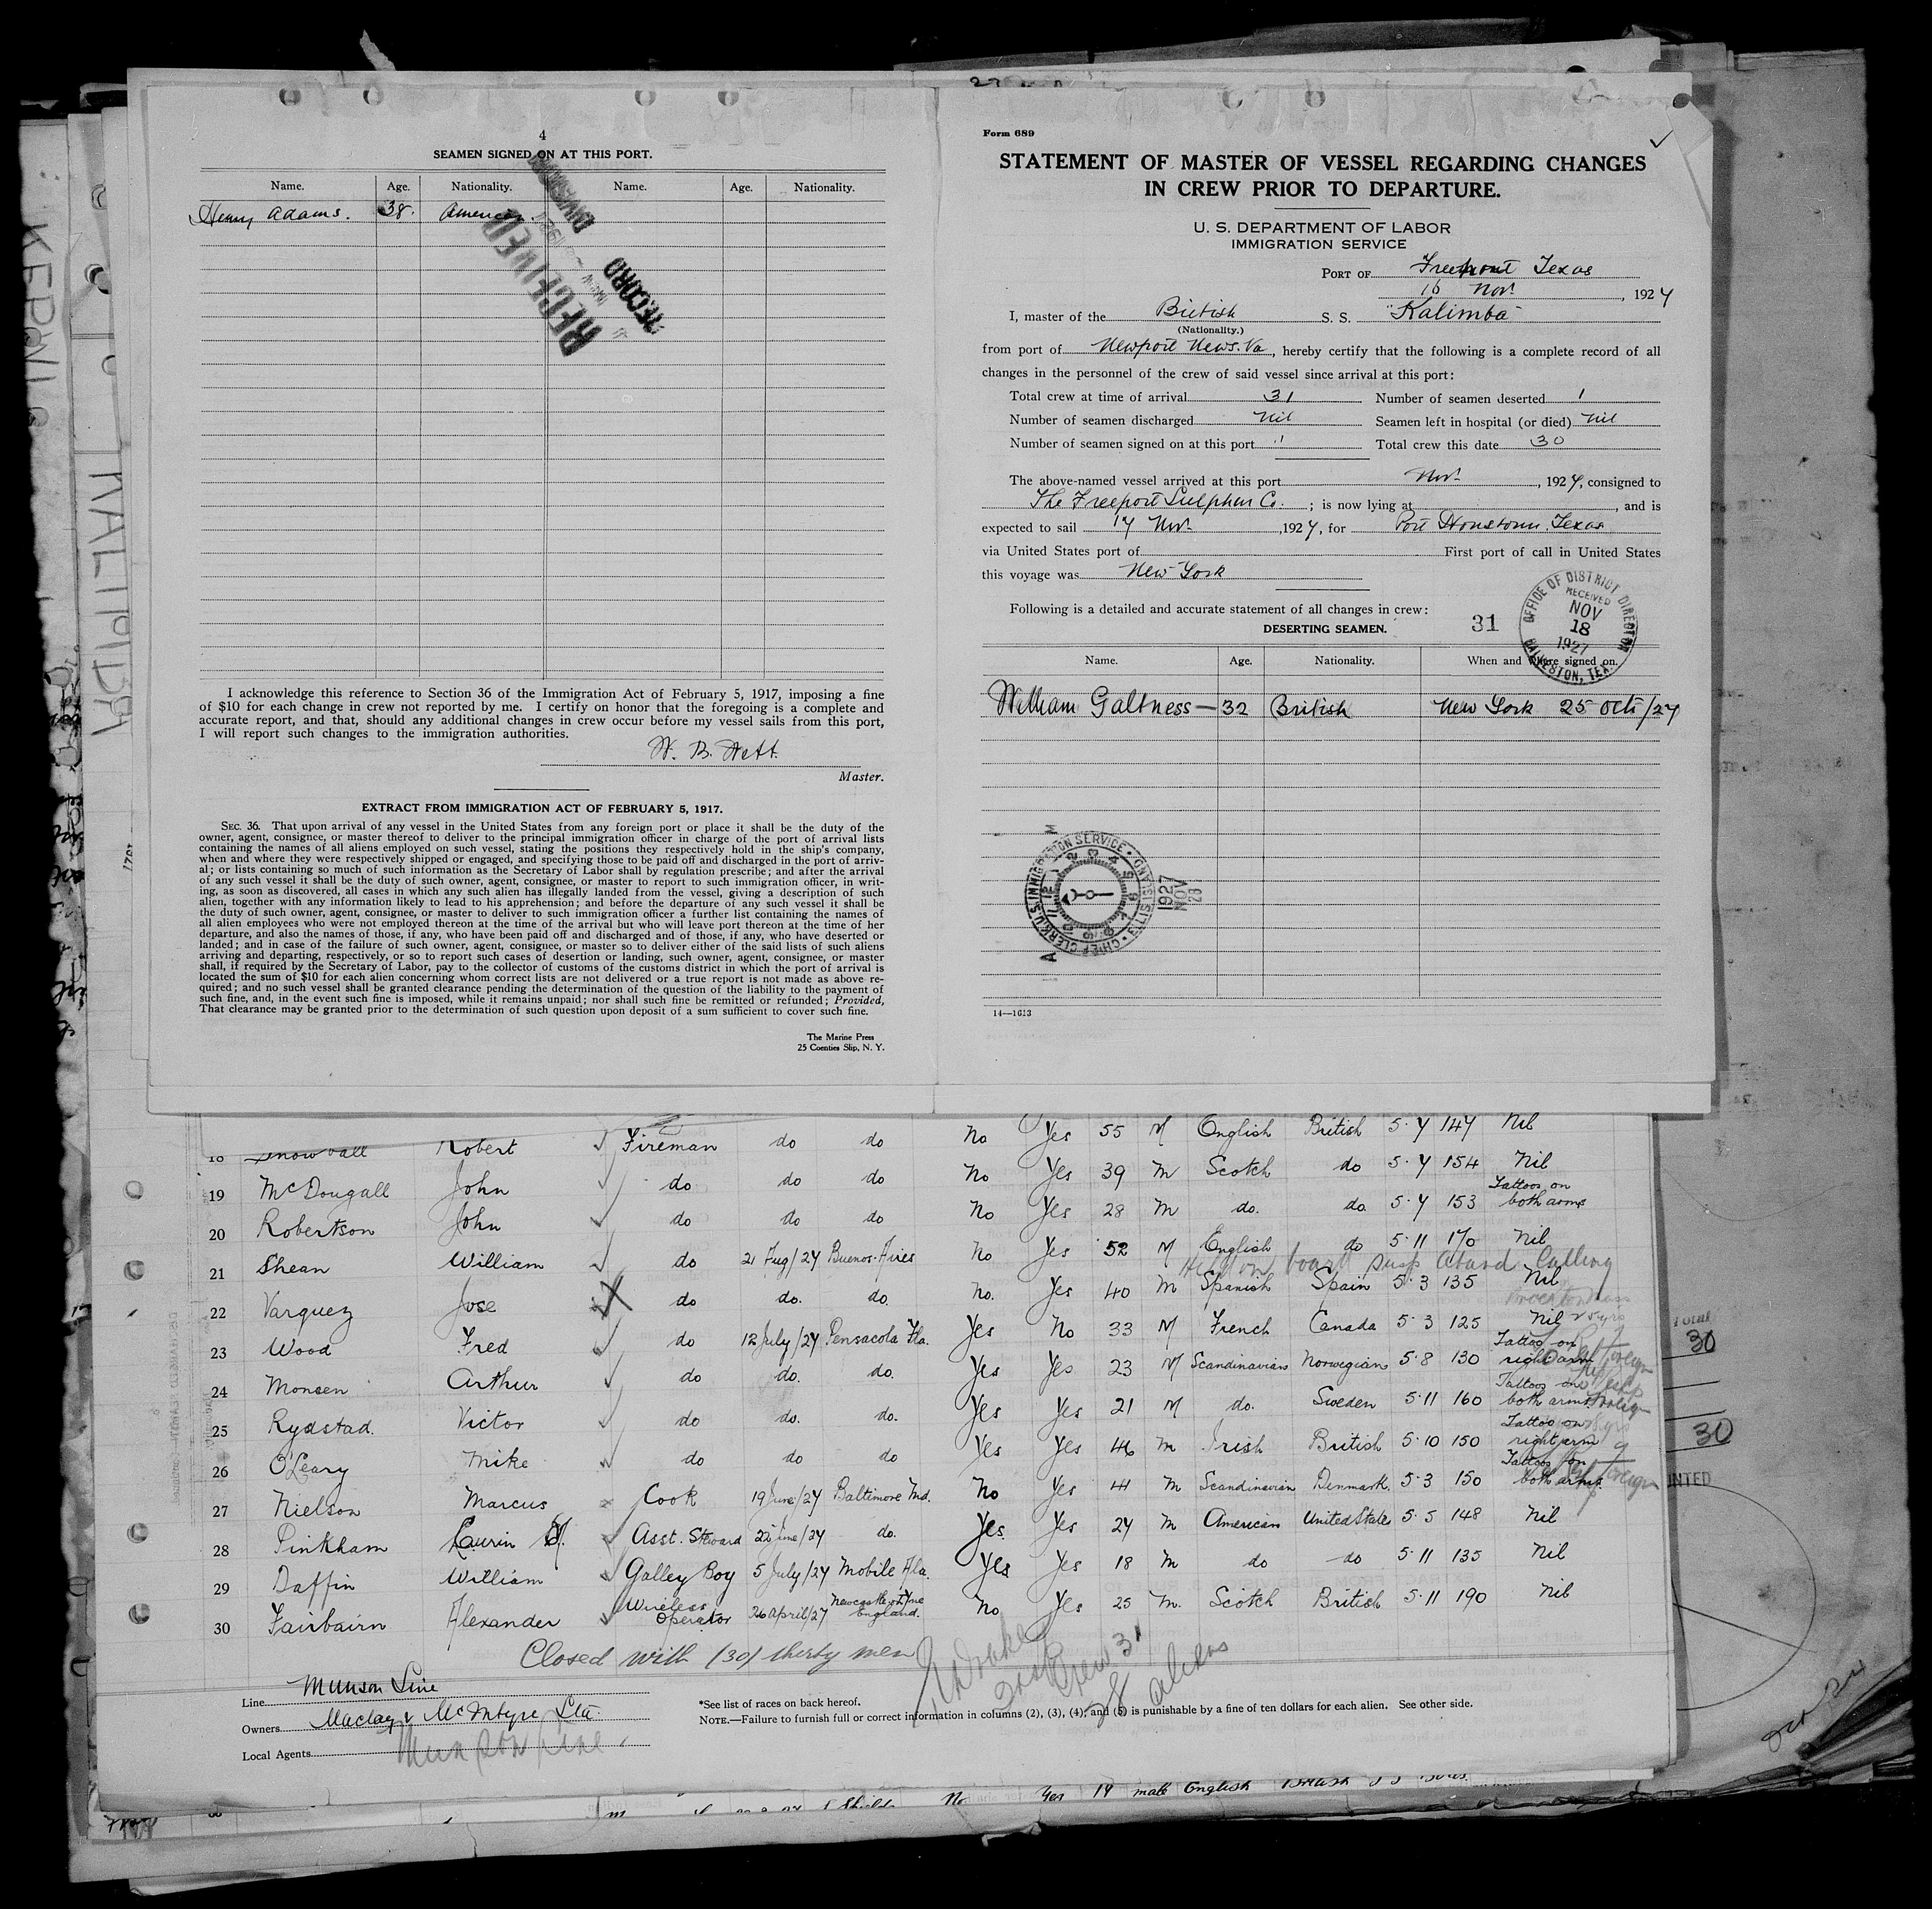 4
SEAMEN SIGNED ON AT THIS PORT.
Name. Age. Nationality. Name. Age. Nationality.
Henry Adams. 38. American.
RECEIVED
RECORD
DIVISION
I acknowledge this reference to Section 36 of the Immigration Act of February 5, 1917, imposing a fine
of $10 for each change in crew not reported by me. I certify on honor that the foregoing is a complete and
accurate report, and that, should any additional changes in crew occur before my vessel sails from this port,
I will report such changes to the immigration authorities.
Master.
EXTRACT FROM IMMIGRATION ACT OF FEBRUARY 5, 1917.
SEC. 36. That upon arrival of any vessel in the United States from any foreign port or place it shall be the duty of the
owner, agent, consignee, or master thereof to deliver to the principal immigration officer in charge of the port of arrival lists
containing the names of all aliens employed on such vessel, stating the positions they respectively hold in the ship's company,
when and where they were respectively shipped or engaged, and specifying those to be paid off and discharged in the port of arriv-
al; or lists containing so much of such information as the Secretary of Labor shall by regulation prescribe; and after the arrival
of any such vessel it shall be the duty of such owner, agent, consignee, or master to report to such immigration officer, in writ-
ing, as soon as discovered, all cases in which any such alien has illegally landed from the vessel, giving a description of such
alien, together with any information likely to lead to his apprehension; and before the departure of any such vessel it shall be
the duty of such owner, agent, consignee, or master to deliver to such immigration officer a further list containing the names of
all alien employees who were not employed thereon at the time of the arrival but who will leave port thereon at the time of her
departure, and also the names of those, if any, who have been paid off and discharged and of those, if any, who have deserted or
landed; and in case of the failure of such owner, agent, consignee, or master so to deliver either of the said lists of such aliens
arriving and departing, respectively, or so to report such cases of desertion or landing, such owner, agent, consignee, or master
shall, if required by the Secretary of Labor, pay to the collector of customs of the customs district in which the port of arrival is
located the sum of $10 for each alien concerning whom correct lists are not delivered or a true report is not made as above re-
quired; and no such vessel shall be granted clearance pending the determination of the question of the liability to the payment of
such fine, and, in the event such fine is imposed, while it remains unpaid; nor shall such fine be remitted or refunded; Provided,
That clearance may be granted prior to the determination of such question upon deposit of a sum sufficient to cover such fine.
The Marine Press
25 Coenties Slip, N. Y.
Form 689
STATEMENT OF MASTER OF VESSEL REGARDING CHANGES
IN CREW PRIOR TO DEPARTURE.
U. S. DEPARTMENT OF LABOR
IMMIGRATION SERVICE
PORT OF Freeport Texas
16 Nov., 1927
I, master of the British S. S. "Kalimba"
(Nationality.)
from port of Newport News. Va, hereby certify that the following is a complete record of all
changes in the personnel of the crew of said vessel since arrival at this port:
Total crew at time of arrival 31 Number of seamen deserted 1
Number of seamen discharged Nil Seamen left in hospital (or died) Nil
Number of seamen signed on at this port Total crew this date 30
The above-named vessel arrived at this port Nov., 1927, consigned to
The Freeport Sulphur Co.; is now lying at , and is
expected to sail 17 Nov., 1927, for Port Houston, Texas
via United States port of First port of call in United States
this voyage was New York
Following is a detailed and accurate statement of all changes in crew:
DESERTING SEAMEN. 31
OFFICE OF DISTRICT DIRECTOR
RECEIVED
NOV
18
1927
GALVESTON, TEX.
Name. Age. Nationality. When and where signed on.
William Galtness — 32 British New York 25 Oct/27
U.S. IMMIGRATION SERVICE
CHIEF CLERK
1927
NOV
14—1613
18 Snowball Robert Fireman do do No Yes 55 M English British 5.7 147 Nil
19 McDougall John do do do No Yes 39 M Scotch do 5.7 154 Nil
20 Robertson John do do do No Yes 28 M do. do. 5.7 153 Tattoos on both arms
21 Shean William do 21 Aug/27 Buenos-Aires No Yes 52 M English do 5.11 170 Nil
22 Varquez Jose do do. do. No. Yes 40 M Spanish Spain 5.3 135 Nil
23 Wood Fred do 12 July/27 Pensacola Fla. Yes No 33 M French Canada 5.3 125 Nil
24 Monsen Arthur do do. do. Yes Yes 23 M Scandinavian Norwegian 5.8 130 Tattoo on right arm
25 Rydstad. Victor do do. do. Yes Yes 21 M do. Sweden 5.11 160 Tattoos on both arms
26 O'Leary Mike do do do Yes Yes 46 M Irish British 5.10 150 Tattoo on right arm
27 Nielson Marcus Cook 19 June/27 Baltimore Md. No Yes 41 M Scandinavian Denmark. 5.3 150 Tattoos on both arms.
28 Pinkham Laurin Asst. Steward 22 June/27 do. Yes Yes 27 M American United States 5.5 148 Nil
29 Daffin William Galley Boy 5 July/27 Mobile Ala. Yes Yes 18 M do do 5.11 135 Nil
30 Fairbairn Alexander Wireless Operator 26 April/27 Newcastle on Tyne England. No Yes 25 M. Scotch British 5.11 190 Nil
Closed with (30) thirty men
Crew 31
28 aliens
Line Munson Line
Owners Maclay & McIntyre Ltd.
Local Agents Munson Line
*See list of races on back hereof.
NOTE.—Failure to furnish full or correct information in columns (2), (3), (4), and (5) is punishable by a fine of ten dollars for each alien. See other side.
Total
30
30
No Yes 19 male English British